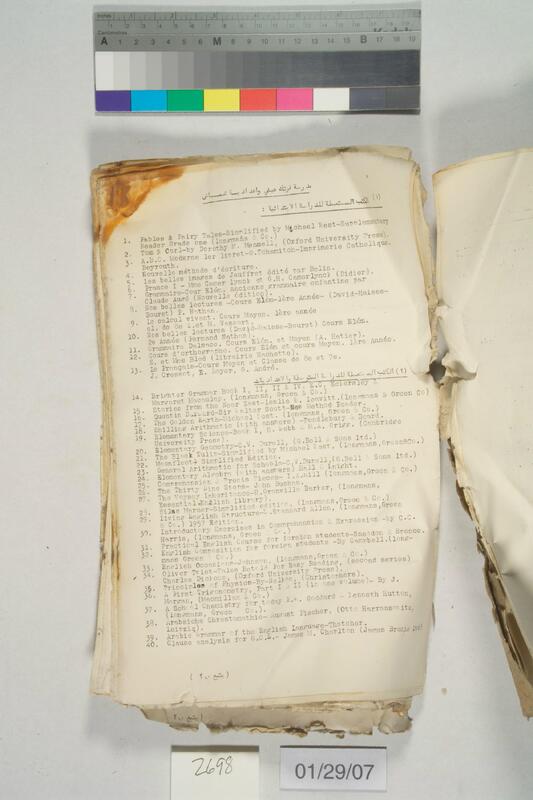 Inches
Centimetres
A 1 2 3 4 5 6 M 7 8 9 10 11 12 13 14 15 B 17 18 19
(١) الكتب المستعملة للدراسة الابتدائية :
1. Fables & Fairy Tales-Simplified by Michael West-Supplementary
Reader Grade one (Longmans & Co.)
2. Tom & Carl-by Dorothy M. (Oxford University Press).
3. A.B.C. Moderne 1er livret-G. Tohmitch-Imprimerie Catholique.
Beyrouth.
4. Nouvelle méthode d'écriture.
5. Les belles images de Jauffret édité par Belin.
6. France I - Mme Camerlynck et G.H. Camerlynck (Didier).
7. Grammaire-Cour Elém. Ancienne grammaire enfantine par
Claude Augé (Nouvelle édition).
8. Nos belles lectures -Cours Elém-1ère Année- (David-Haisse-
Bouret) F. Nathan.
9. Le calcul vivant. Cours Moyen. 1ère année
el. de Se L.et M. Vassort.
10. Nos belles lectures (David-Haisse-Bouret) Cours Elém.
2e Année (Fernand Nathan).
11. Grammaire Dumas. Cours Elém. et Moyen (A. Hatier).
12. Cours d'orthographe. Cours Elém et cours Moyen. 1ère Année.
E. et Mme Bled (librairie Hachette).
13. Le Français-Cours Moyen et Classe de 8e et 7e.
J. Cressot, E. Royer, G. André.
14. Brighter Grammar Book I, II, II & IV. E.O. Eckersley &
Margaret Macaulay. (Longmans, Green & Co.)
15. Stories from the Near East-Leslie E. Leavitt.(Longmans & Green Co)
16. Quentin Durward-Sir Walter Scott-New Method Reader.
17. The Golden Earth-Michael West. (Longmans, Green & Co.)
18. Shilling Arithmetic (with answers) -Pendlebury & Beard.
19. Elementary Science-Book I, E. Webb & M.A. Grigg. (Cambridge
University Press).
20. Elementary Geometry-C.V. Durell, (G.Bell & Sons ltd.)
21. The Black Tulip-Simplified by Michael West. (Longmans,Green&Co.)
22. Moonfleet- Simplified Edition.
23. General Arithmetic for Schools-C.V.Durell,(G.Bell & Sons ltd.)
24. Elementary Algebra (with answers) Hall & Knight.
25. Comprehension & Precis Pieces- (Longmans,Green & Co.)
26. The Thirty Nine Steps- John Buchan.
27. The Voysey Inheritance-H.Granville Barker, (Longmans,
Essential English Library).
28. Silas Marner-Simplified edition. (Longmans,Green & Co.)
29. Living English Structure-Stannard Allen, (Longmans,Green
& Co.) 1957 Edition.
30. Introductory Exercises in Comprehension & Expression -by C.C.
Harris, (Longmans, Green & Co.)
31. Practical English Course for foreign students-Sneadon & Brenco.
32. English Composition for foreign students -By Campbell.(Long-
mans Green & Co.)
33. English Occasions-Johnson, (Longmans,Green & Co.)
34. Oliver Twist-Tales Retold for Easy Reading, (second series)
Charles Dickens, (Oxford University Press).
35. Principles of Physics-By (Christophers).
36. A First Trigonometry, Part I & II (in one volume)- By J.
Morgan, (Macmillan & Co.)
37. A School Chemistry for today F.A. Goddard - Kenneth Hutton,
(Longmans, Green Co.).
38. Arabische Chrestomathie- August Fischer, (Otto Harrassowitz,
Leipzig).
39. Arabic Grammar of the English Language-Thatcher.
40. Clause analysis for G.C.E.- James M. Charlton (James Brodie
( يتبع ٢٠٠ )
2698
01/29/07